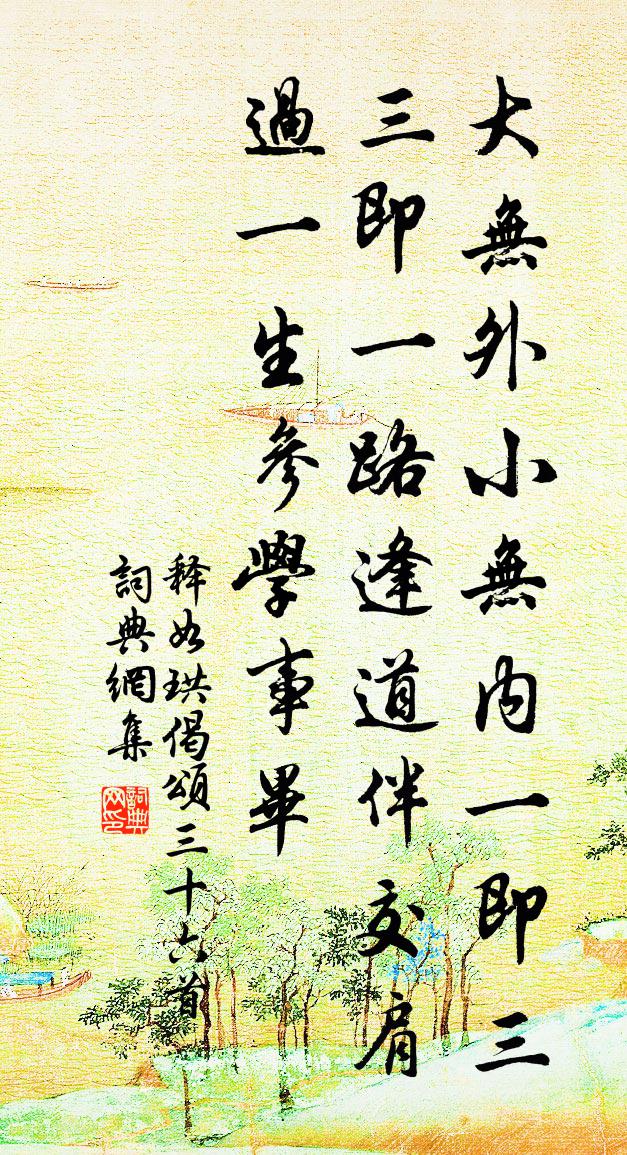 大無外小無内一即三
三即一路逢道伴交肩
過一生參學事畢
释如珙偈頌三十六首
詞典網集
詞典网印